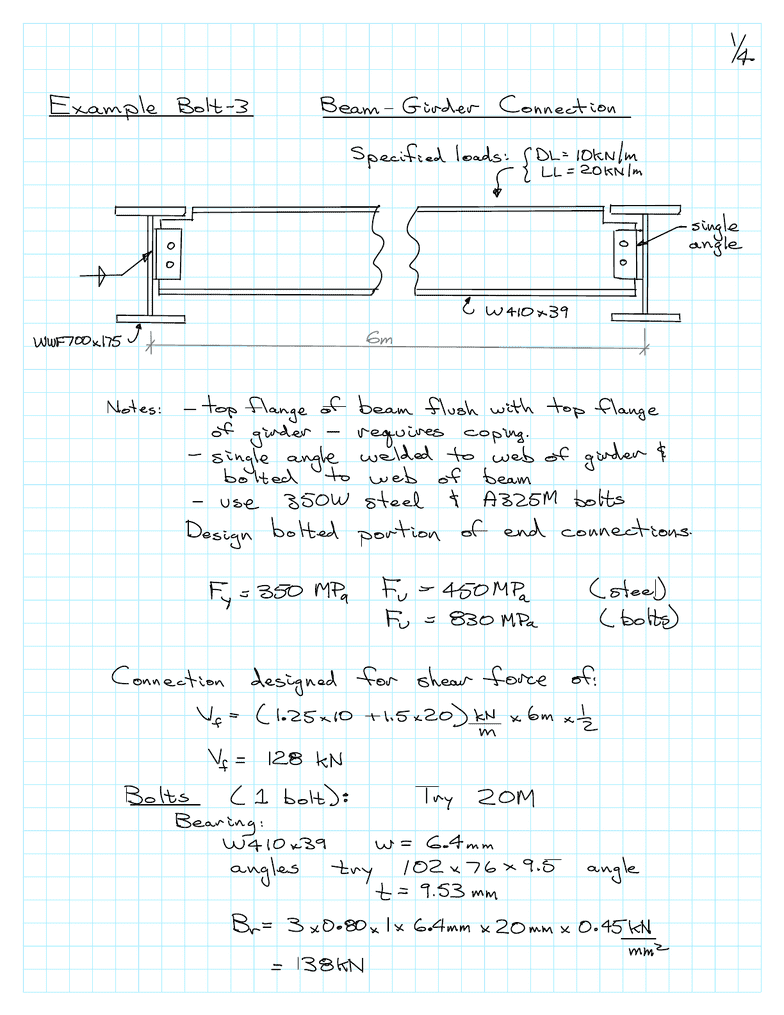 1/4
Example Bolt-3 Beam-Girder Connection
Specified loads: { DL = 10kN/m
LL = 20kN/m
single
angle
W410x39
WWF700x175
6m
Notes: - top flange of beam flush with top flange
of girder - requires coping.
- single angle welded to web of girder &
bolted to web of beam
- use 350W steel & A325M bolts
Design bolted portion of end connections.
Fy = 350 MPa Fu = 450 MPa (steel)
Fu = 830 MPa (bolts)
Connection designed for shear force of:
Vf = (1.25x10 + 1.5x20) kN/m x 6m x 1/2
Vf = 128 kN
Bolts (1 bolt): Try 20M
Bearing:
W410x39 w = 6.4mm
angles try 102x76x9.5 angle
t = 9.53 mm
Br = 3 x 0.80 x 1 x 6.4mm x 20mm x 0.45 kN/mm²
= 138kN